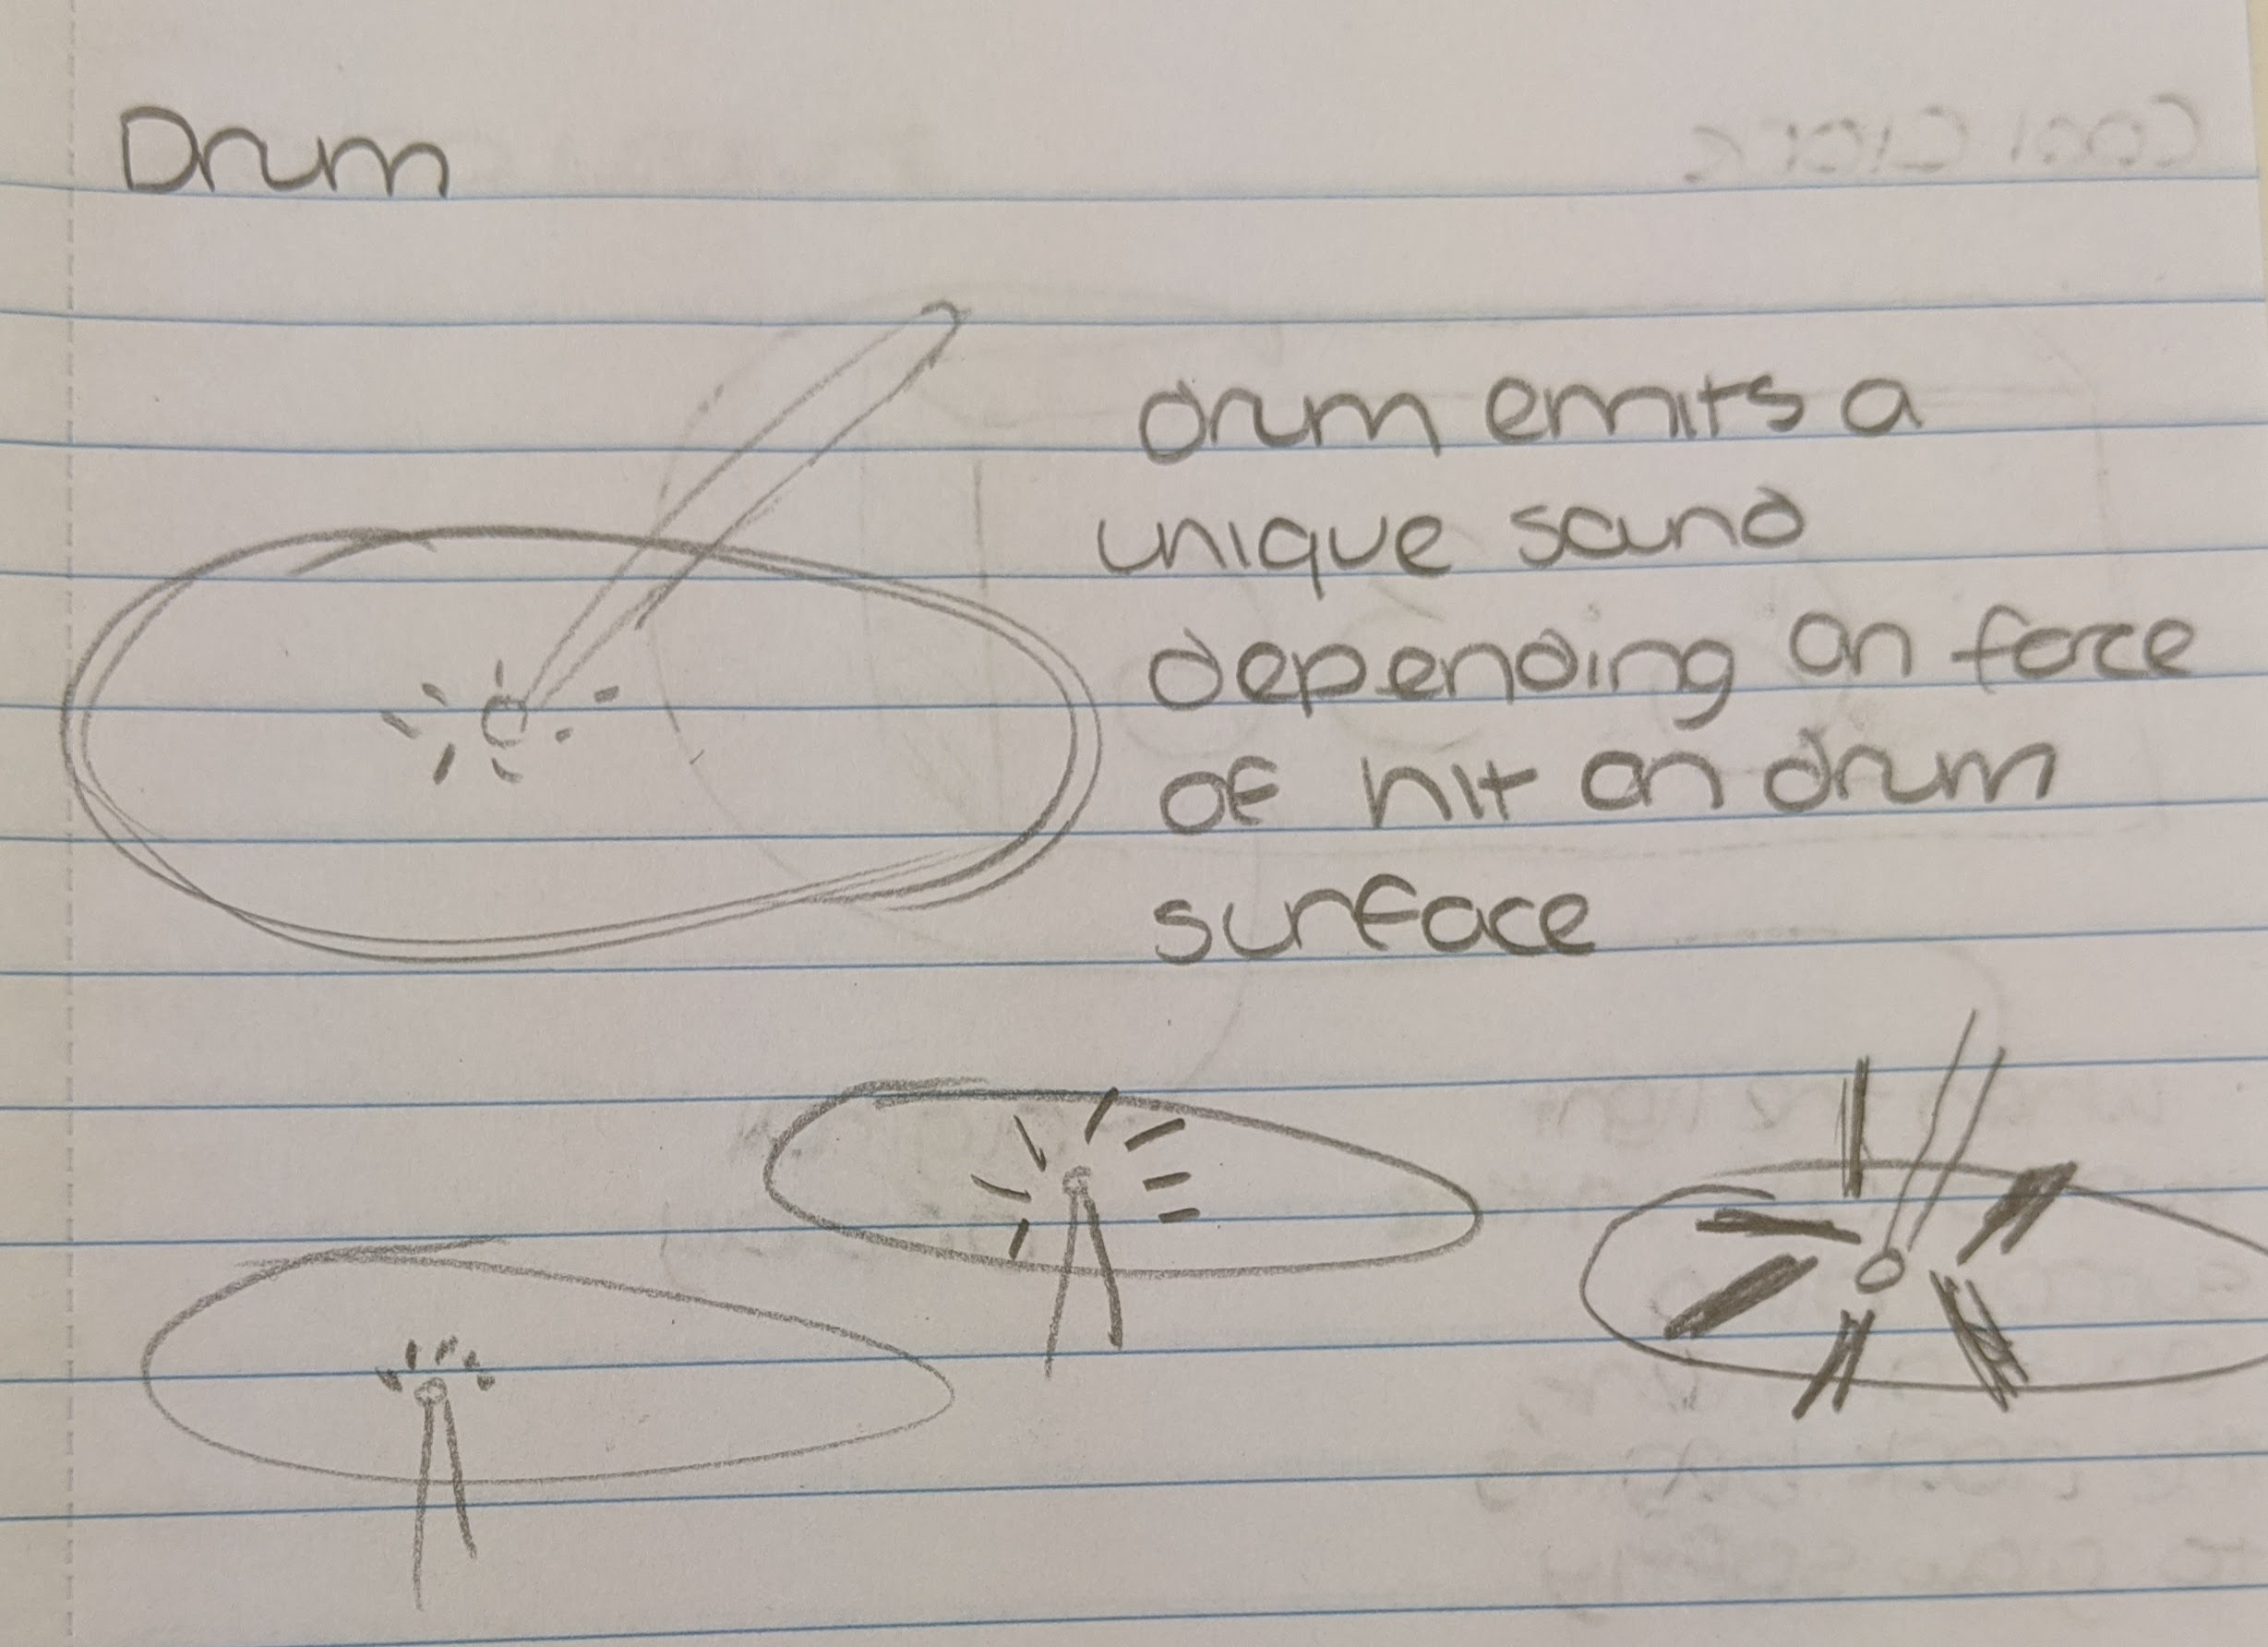 Drum
drum emits a
unique sound
depending on force
of hit on drum
surface